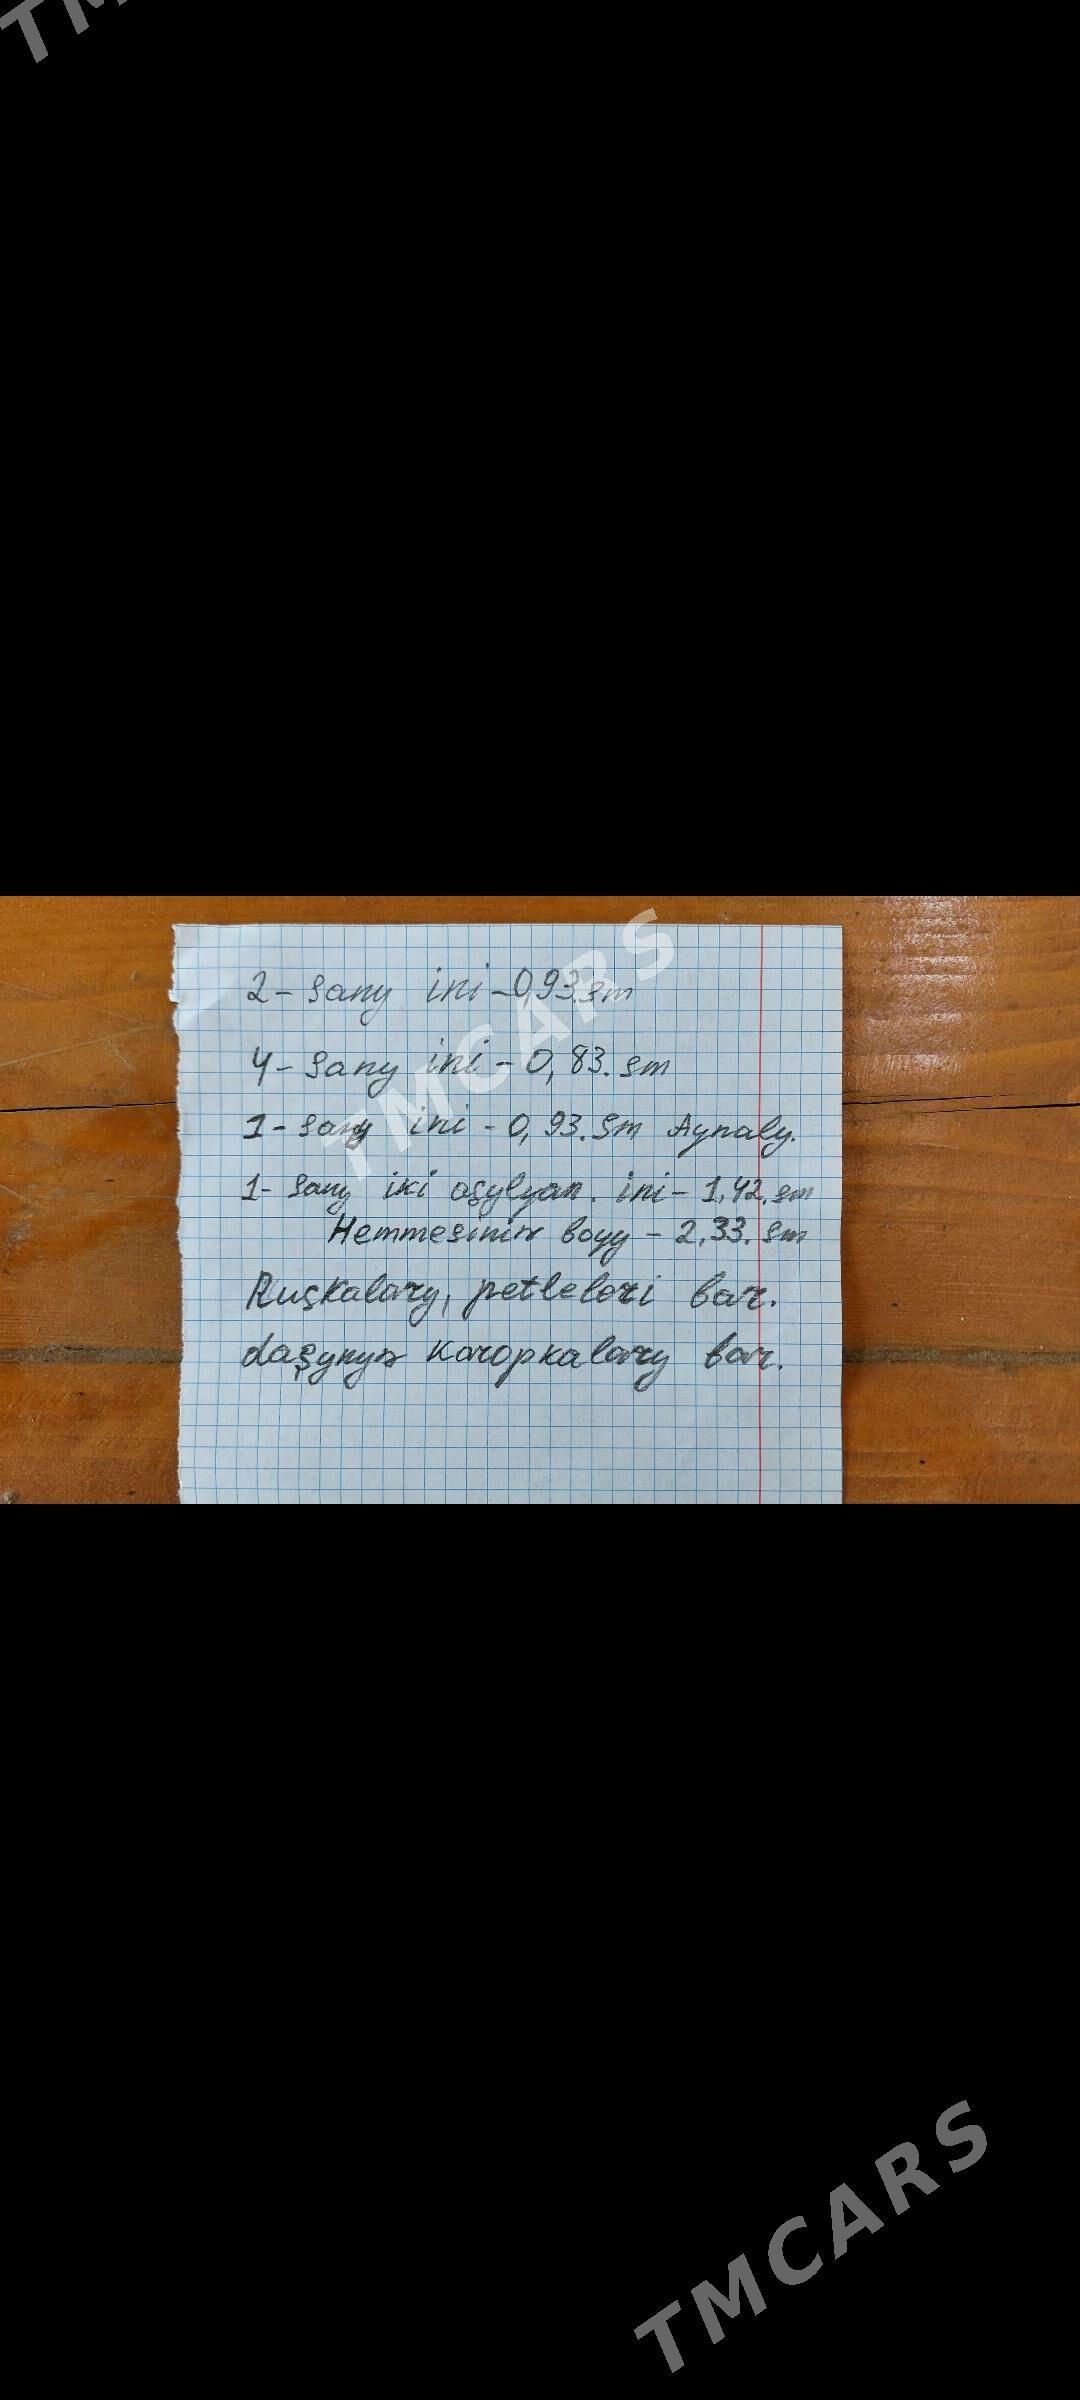 TM
2- sany ini - 0,93.sm
4- sany ini - 0,83.sm
1- sany ini - 0,93.sm Aynaly.
1- sany iki aşylyan. ini - 1,42.sm
Hemmesinin boyy - 2,33.sm
Ruşkalary, petleleri bar.
daşynyn karopkalary bar.
TMCARS
TMCARS